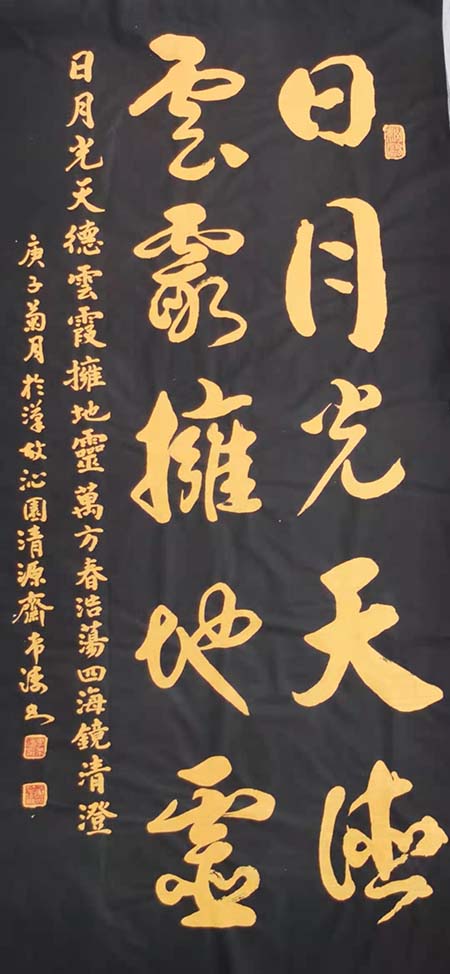 日月光天德
雲霞擁地靈
日月光天德雲霞擁地靈萬方春浩蕩四海鏡清澄
庚子菊月於漢故沁園清源齋韋